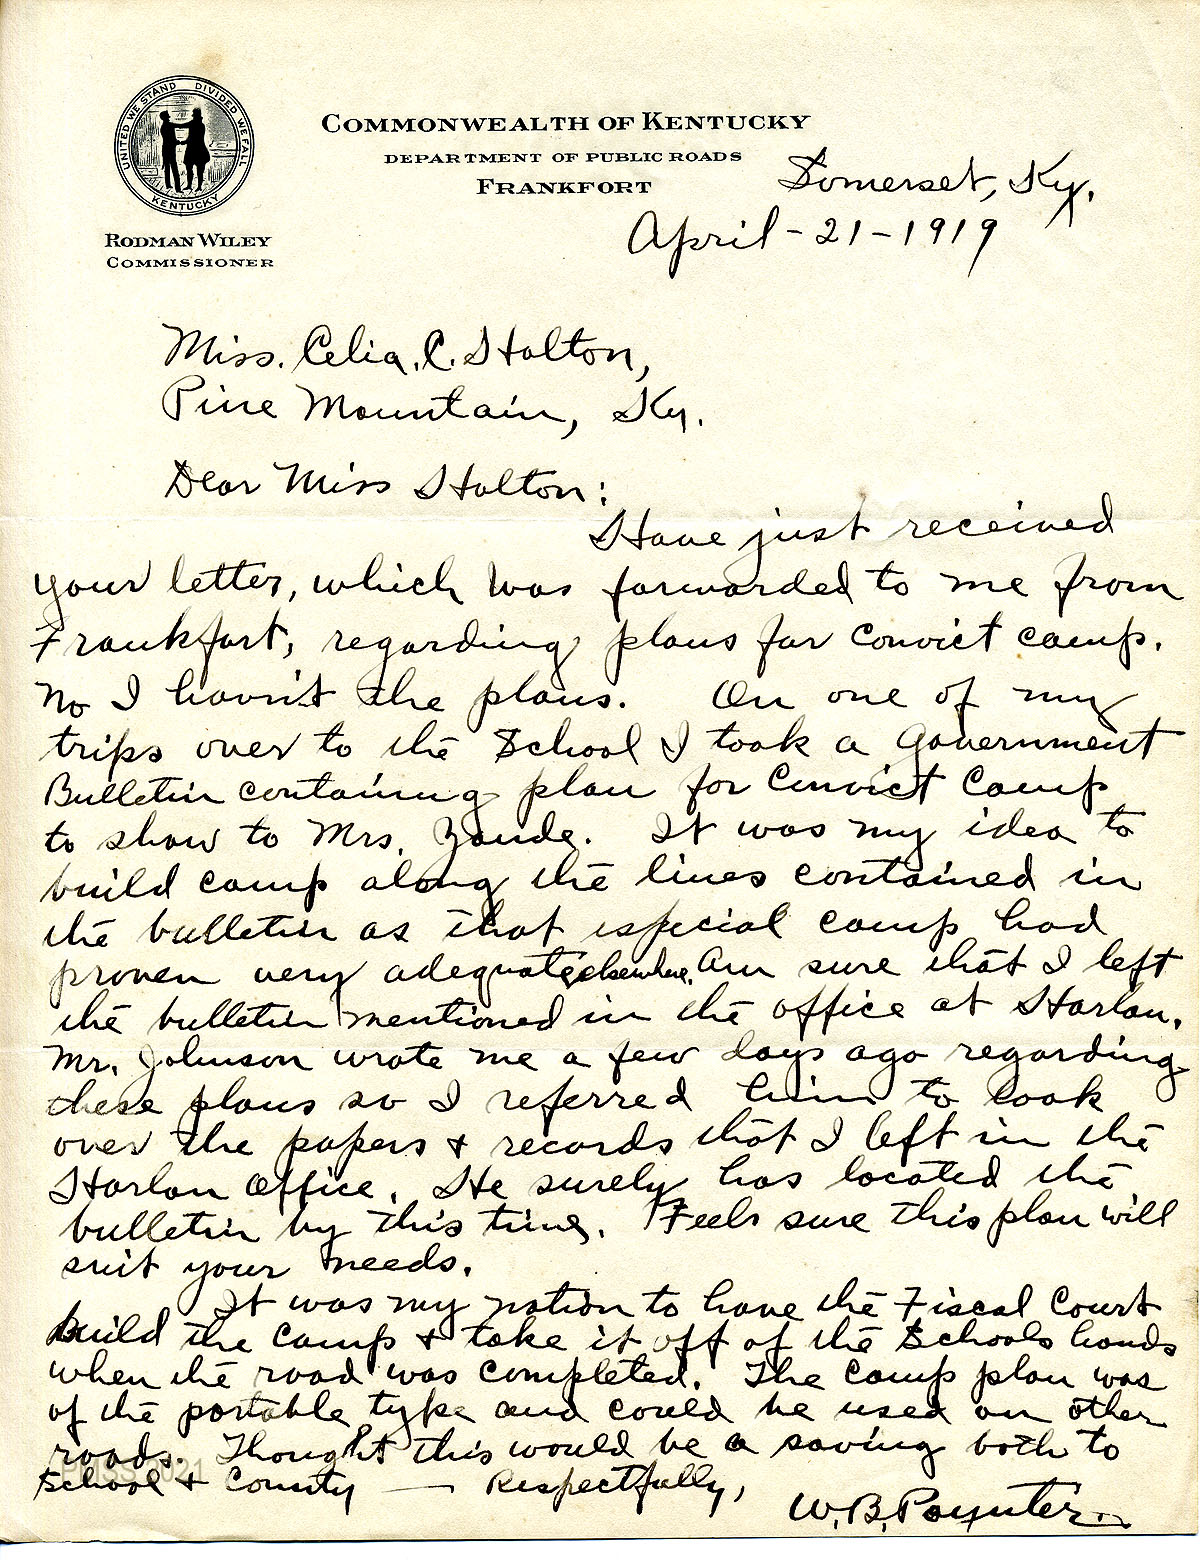 UNITED WE STAND DIVIDED WE FALL
KENTUCKY
COMMONWEALTH OF KENTUCKY
DEPARTMENT OF PUBLIC ROADS
FRANKFORT
RODMAN WILEY
COMMISSIONER
Somerset, Ky.
April-21-1919
Miss. Celia. C. Holton,
Pine Mountain, Ky.
Dear Miss Holton:
Have just received
your letter, which was forwarded to me from
Frankfort, regarding plans for convict camp.
No I havn't the plans. On one of my
trips over to the School I took a Government
Bulletin containing plan for Convict Camp
to show to Mrs. Zande. It was my idea to
build camp along the lines contained in
the bulletin as that especial camp had
proven very adequate elsewhere. Am sure that I left
the bulletin mentioned in the office at Harlan.
Mr. Johnson wrote me a few days ago regarding
these plans so I referred him to look
over the papers & records that I left in the
Harlan Office. He surely has located the
bulletin by this time. Feels sure this plan will
suit your needs.
It was my notion to have the Fiscal Court
build the camp & take it off of the Schools hands
when the road was completed. The camp plan was
of the portable type and could be used on other
roads. Thought this would be a saving both to
School & County — Respectfully,
W. B. Poynter.
PMSS 2021